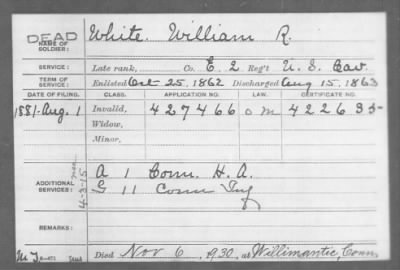 DEAD
NAME OF SOLDIER: White. William R.
SERVICE: Late rank, Co. E, 2 Reg't U. S. Cav.
TERM OF SERVICE: Enlisted Oct 25, 1862 Discharged Aug 15, 1863
DATE OF FILING. CLASS. APPLICATION NO. LAW. CERTIFICATE NO.
1881-Aug. 1 Invalid, 427466 422635
Widow,
Minor,
ADDITIONAL SERVICES: A 1 Conn. H. A.
G 11 Conn Inf
4-3-15
REMARKS:
Died Nov 6, 1930, at Willimantic Conn